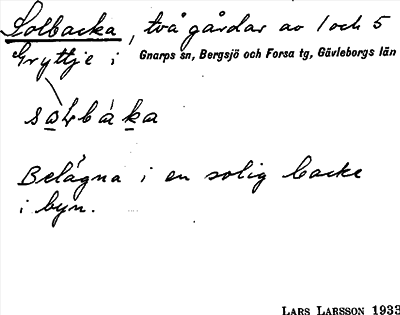 Solbacka, två gårdar av 1 och 5
Gryttje i Gnarps sn, Bergsjö och Forsa tg, Gävleborgs län
Belägna i en solig backe
i byn.
LARS LARSSON 1933